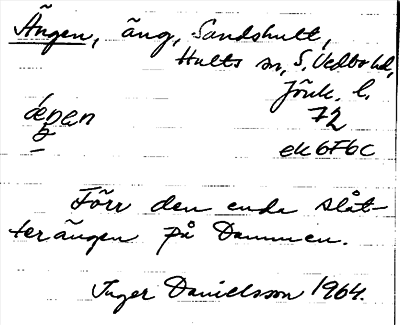 Ängen, äng, Sandshult,
Hults sn, S. Vedbo hd,
Jönk. l.
72
ek 6F6c
Förr den enda slåt-
terängen på Dammen.
Inger Danielsson 1964.